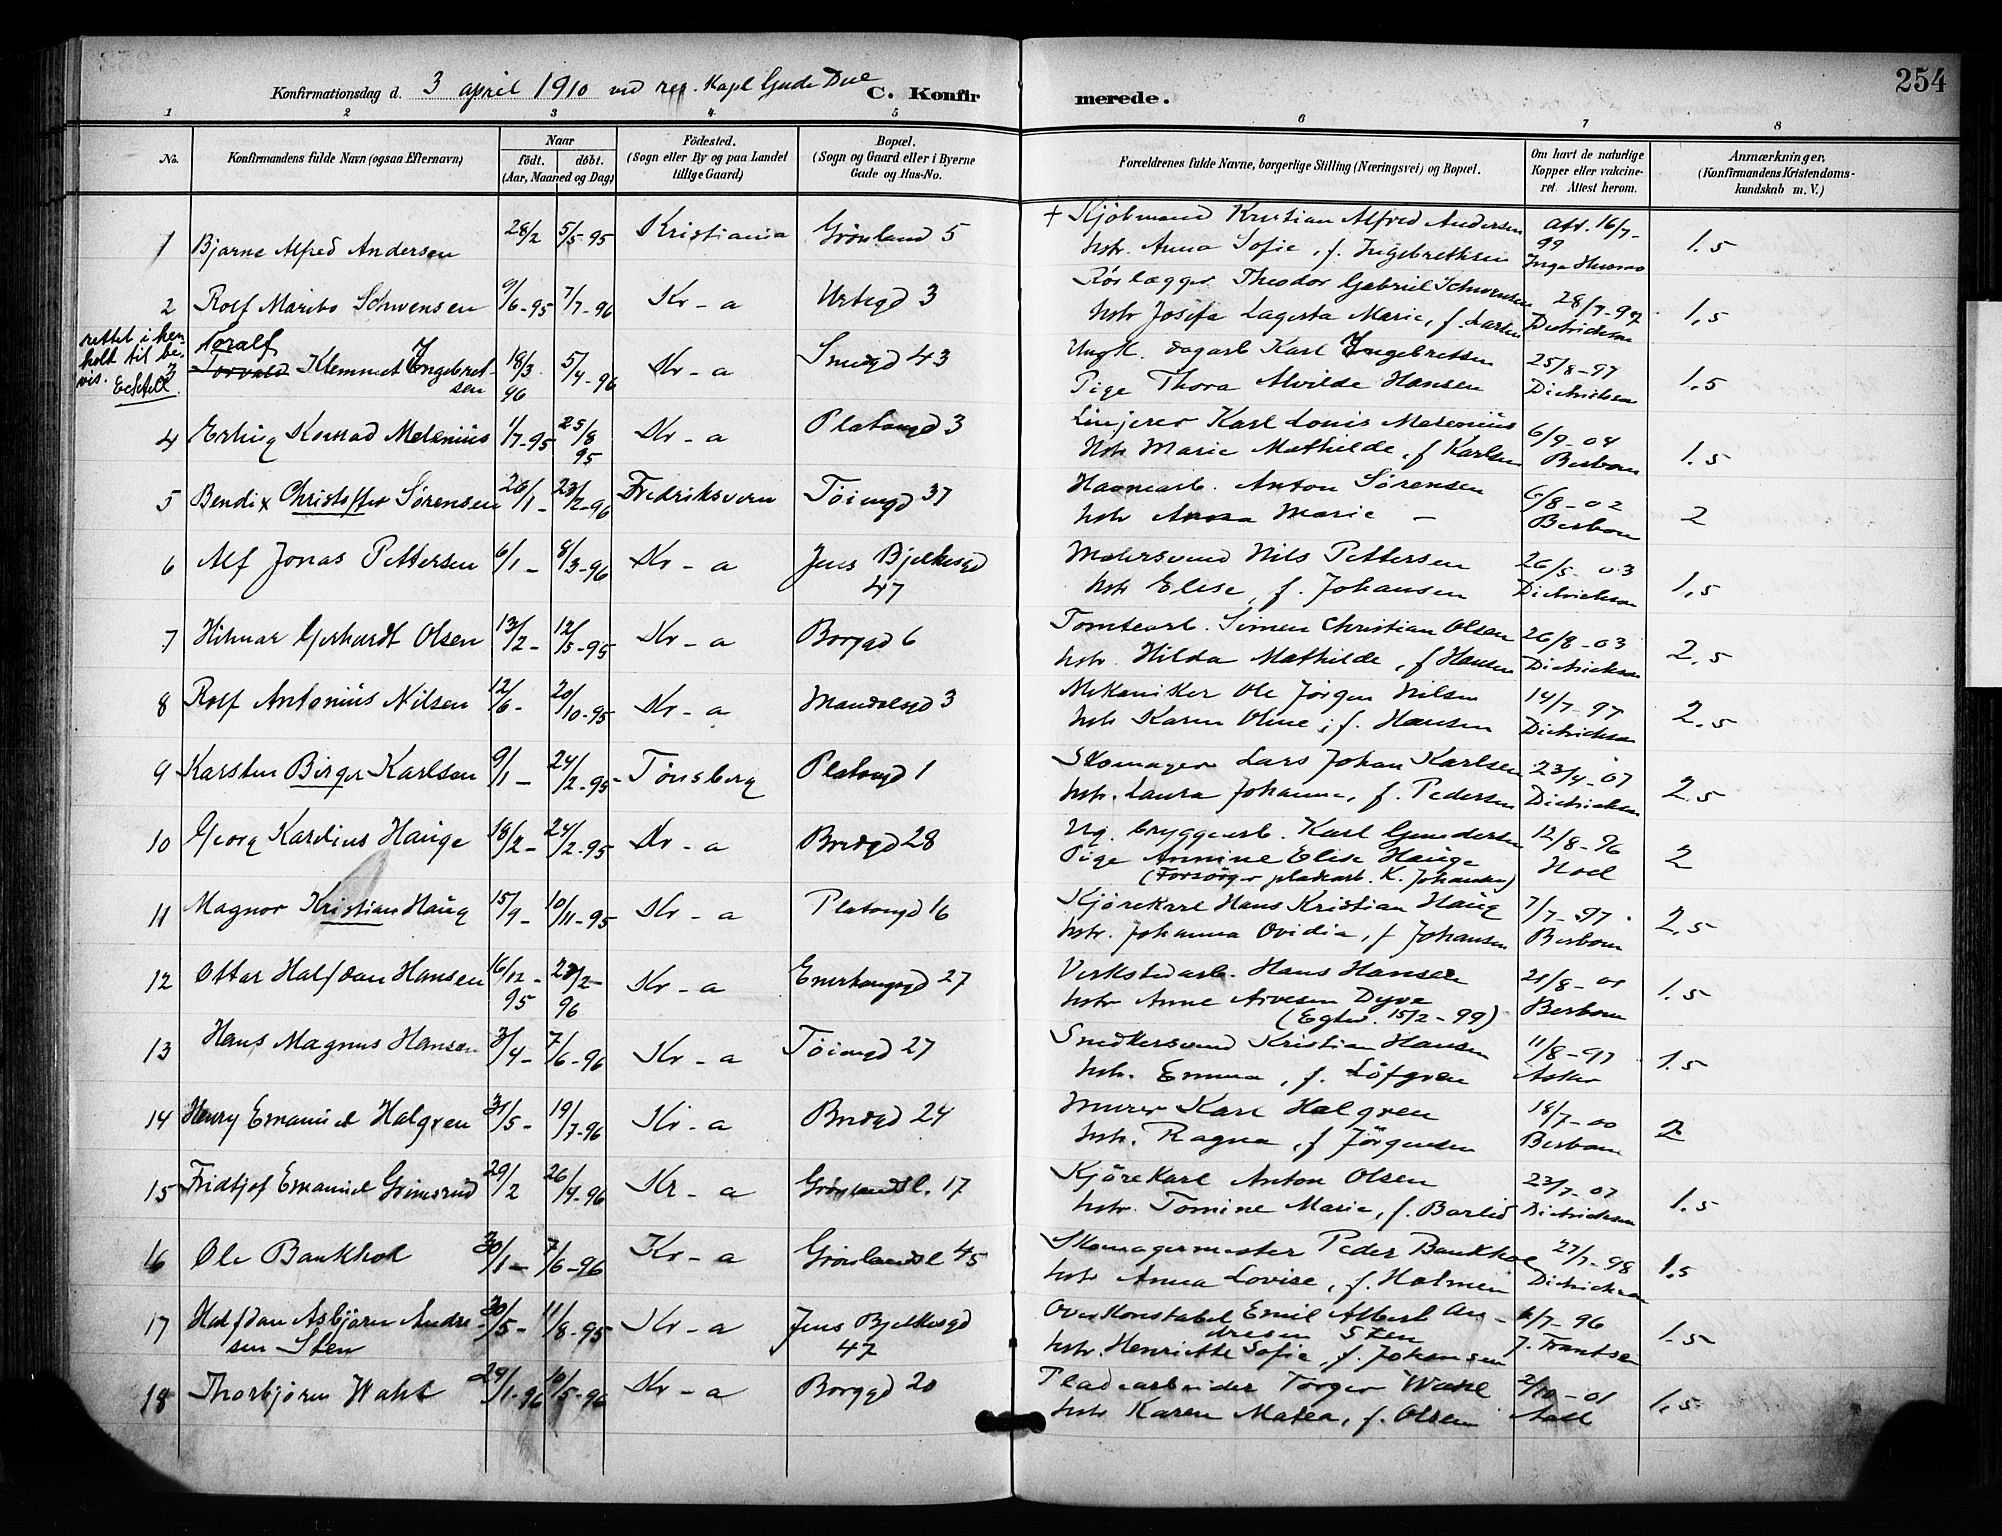 254
Konfirmationsdag d. 3 april 1910 ved res. Kapl Gude Due C. Konfirmerede.
1 2 3 4 5 6 7 8
No. Konfirmandens fulde Navn (ogsaa Efternavn) Naar født. døbt. (Aar, Maaned og Dag) Fødested. (Sogn eller By og paa Landet tillige Gaard) Bopæl. (Sogn og Gaard eller i Byerne Gade og Hus-No. Forældrenes fulde Navne, borgerlige Stilling (Næringsvei) og Bopæl. Om havt de naturlige Kopper eller vakcineret. Attest herom. Anmærkninger, (Konfirmandens Kristendomskundskab m. V.)
1 Bjarne Alfred Andersen 28/2 5/5-95 Kristiania Grønland 5 + Kjøbmand Kristian Alfred Andersen Att. 16/7-99 1.5
hstr. Anna Sofie, f. Ingebrethsen
2 Rolf Maribo Schwensen 9/6-95 7/7-96 Kr-a Urtegd 3 Rørlægger Theodor Gabriel Schwensen 28/7-97 1.5
hstr Josefa Lagerta Marie, f. Larsen Dietrichson
rettet i henhold til bevis.
3 Toralf Torvald Klemmet Ingebretsen 18/3 96 5/4-96 Kr-a Smedgd 43 Ungk. dagarb Karl Ingebretsen 25/8-97 1.5
Pige Thora Alvilde Hansen Dietrichson
4 Erling Konrad Melenius 1/7-95 25/8 95 Kr-a Platougd 3 Linjerer Karl Louis Melenius 6/9-04 1.5
Hstr Marie Mathilde, f Karlsen Berbom
5 Bendix Christoffer Sørensen 26/1- 23/2-96 Fredriksvern Tøiengd 37 Havnearb. Anton Sørensen 6/8-02 2
hstr Anna Marie - Berbom
6 Alf Jonas Pettersen 6/1- 8/3-96 Kr-a Jens Bjelkesgd 47 Malersvend Nils Pettersen 26/5-03 1.5
hstr Elise, f. Johansen Dietrichson
7 Hilmar Gerhardt Olsen 13/2- 12/5-95 Kr-a Borggd 6 Tomtearb. Simen Christian Olsen 26/8-03 2.5
hstr. Hilda Mathilde, f Hansen Dietrichson
8 Rolf Antonius Nilsen 12/6- 20/10-95 Kr-a Mandalsgd 3 Mekaniker Ole Jørgen Nilsen 14/7-97 2.5
hstr Karen Oline, f. Hansen Dietrichson
9 Karsten Birger Karlsen 9/1- 24/2-95 Tønsberg Platougd 1 Skomager Lars Johan Karlsen 23/4-07 2.5
hstr. Laura Johanne, f. Pedersen Dietrichson
10 Georg Karelius Hauge 18/2- 24/2-95 Kr-a Bredgd 28 Ug. bryggearb. Karl Gundersen 12/8-96 2
Pige Annine Elise Hauge Hoel
(Forsørger pladearb. K. Johansen)
11 Magnor Kristian Haug 15/9- 10/11-95 Kr-a Platougd 16 Kjørekarl Hans Kristian Haug 7/7-97 2.5
hstr. Johanna Ovidia, f Johansen Berbom
12 Ottar Halfdan Hansen 16/12-95 23/2-96 Kr-a Enerhaugsgd 27 Verkstedarb. Hans Hansen 21/8-01 1.5
hstr Anne Arvesen Dyve Berbom
(Egtev. 15/2-99)
13 Hans Magnus Hansen 3/4- 7/6-96 Kr-a Tøiengd 27 Snedkersvend Kristian Hansen 11/8-97 1.5
hstr. Emma, f. Löfgren Asker
14 Henry Emanuel Halgren 31/5- 19/7-96 Kr-a Bredgd 24 Murer Karl Halgren 18/7-00 2
hstr. Ragna, f Jörgensen Berbom
15 Fridtjof Emanuel Grimsrud 29/2 26/4-96 Kr-a Grønlandsl. 17 Kjørekarl Anton Olsen 23/7-07 1.5
hstr. Tomine Marie, f. Barlid Dietrichson
16 Ole Bankhol 30/1- 7/6-96 Kr-a Grønlandsl 45 Skomagermester Peder Bankhol 27/7-98 1.5
hstr Anna Lovise, f. Holmen Dietrichson
17 Halfdan Asbjørn Andresen Sten 30/5- 11/8-95 Kr-a Jens Bjelkesgd 47 Overkonstabel Emil Albert Andresen Sten 6/7-96 1.5
hstr. Henriette Sofie, f. Johansen J. Frantsen
18 Thorbjørn Wahl 29/1-96 10/5-96 Kr-a Borggd 20 Pladearbeider Torger Wahl 2/10-01 1.5
hstr Karen Matea, f. Olsen Aall